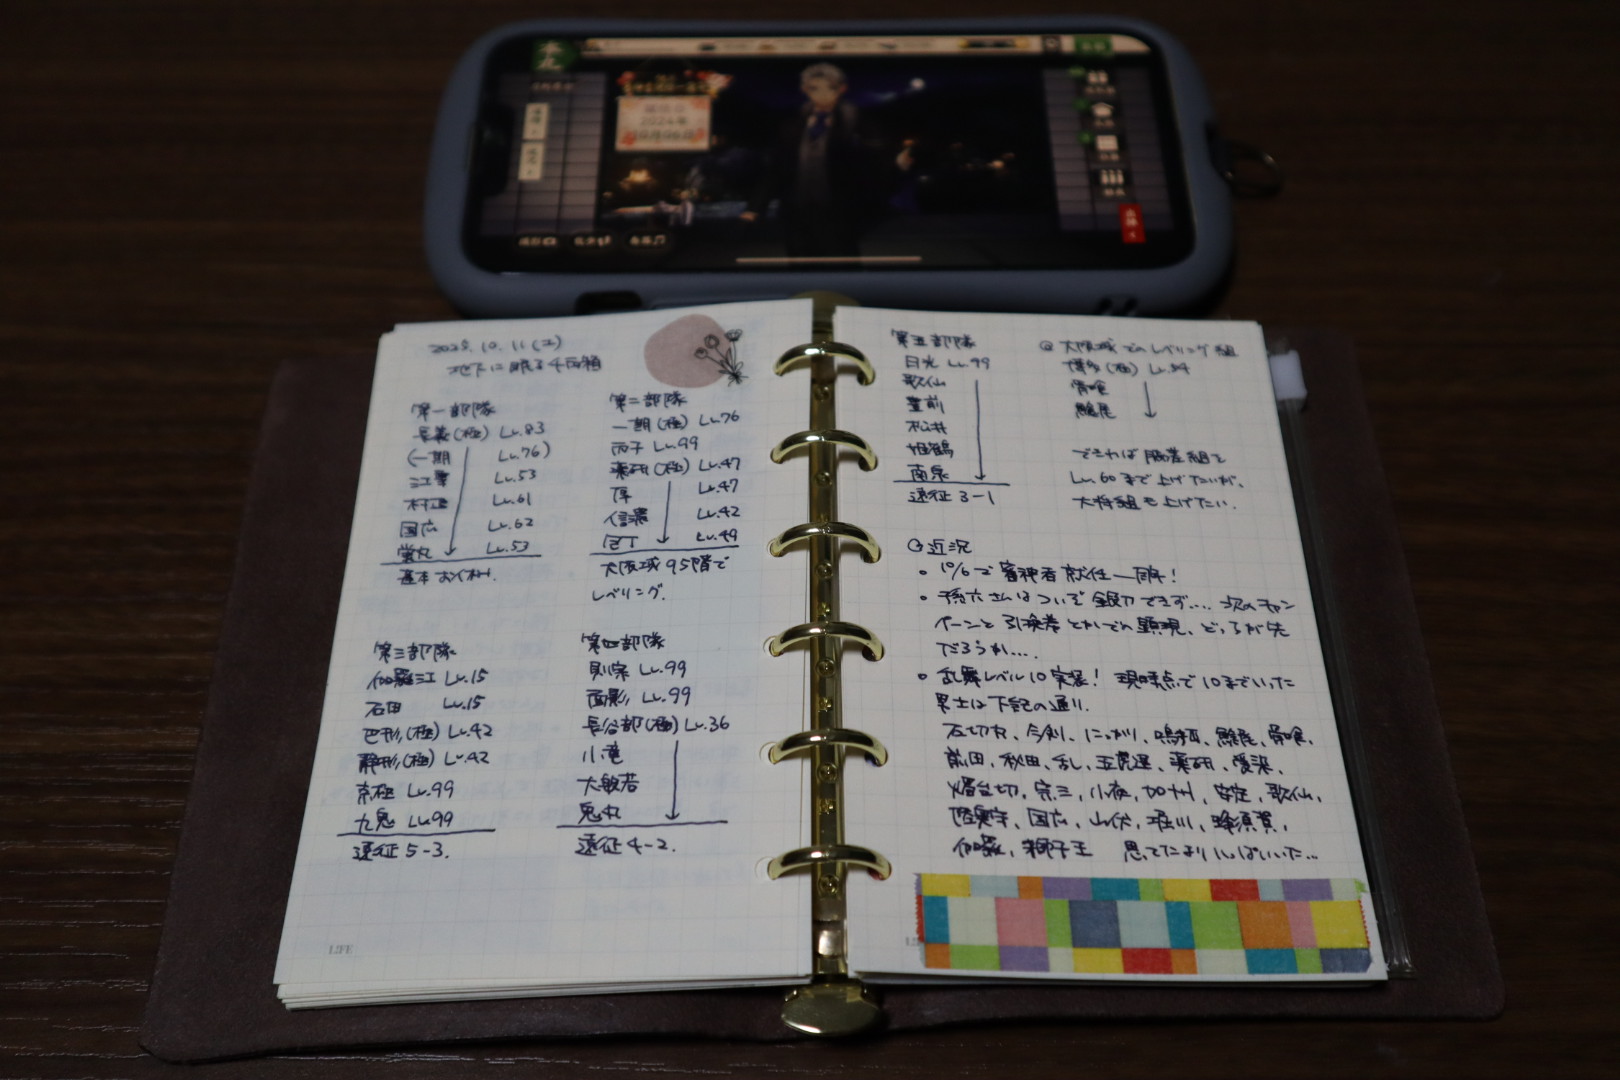 2024年
2025. 10. 11 (土)
地下に眠る千両箱
第一部隊
長義(極) Lv.83
(一期 Lv.76)
江雪 Lv.53
村正 Lv.61
国広 Lv.62
蛍丸 Lv.53
基本おくわん.
第二部隊
一期(極) Lv.76
丙子 Lv.99
薬研(極) Lv.47
厚 Lv.47
信濃 Lv.42
包丁 Lv.49
大阪城95階で
レベリング.
第三部隊
伽羅江 Lv.15
石田 Lv.15
巴形(極) Lv.42
静形(極) Lv.42
京極 Lv.99
九鬼 Lv.99
遠征5-3.
第四部隊
則宗 Lv.99
面影 Lv.99
長谷部(極) Lv.36
小竜
大般若
鬼丸
遠征4-2.
LIFE
第五部隊
日光 Lv.99
歌仙
豊前
松井
姫鶴
南泉
遠征3-1
大阪城でのレベリング組
博多(極) Lv.54
骨喰
鯰尾
できれば脇差組で
Lv.60まで上げたいが、
大将組も上げたい.
近況
• 10/6で審神者就任一周年!
• 孫六さんはついぞ鍛刀できず.... 次のキャン
ペーンと引換券とかでの顕現、どっちが先
だろうか....
• 乱舞レベル10実装! 現時点で10までいった
男士は下記の通り.
石切丸、今剣、にっかり、鳴狐、鯰尾、骨喰、
前田、秋田、乱、五虎退、薬研、愛染、
燭台切、宗三、小夜、加州、安定、歌仙、
陸奥守、国広、山伏、堀川、蜂須賀、
伽羅、獅子王 思ってたよりいっぱいいた...